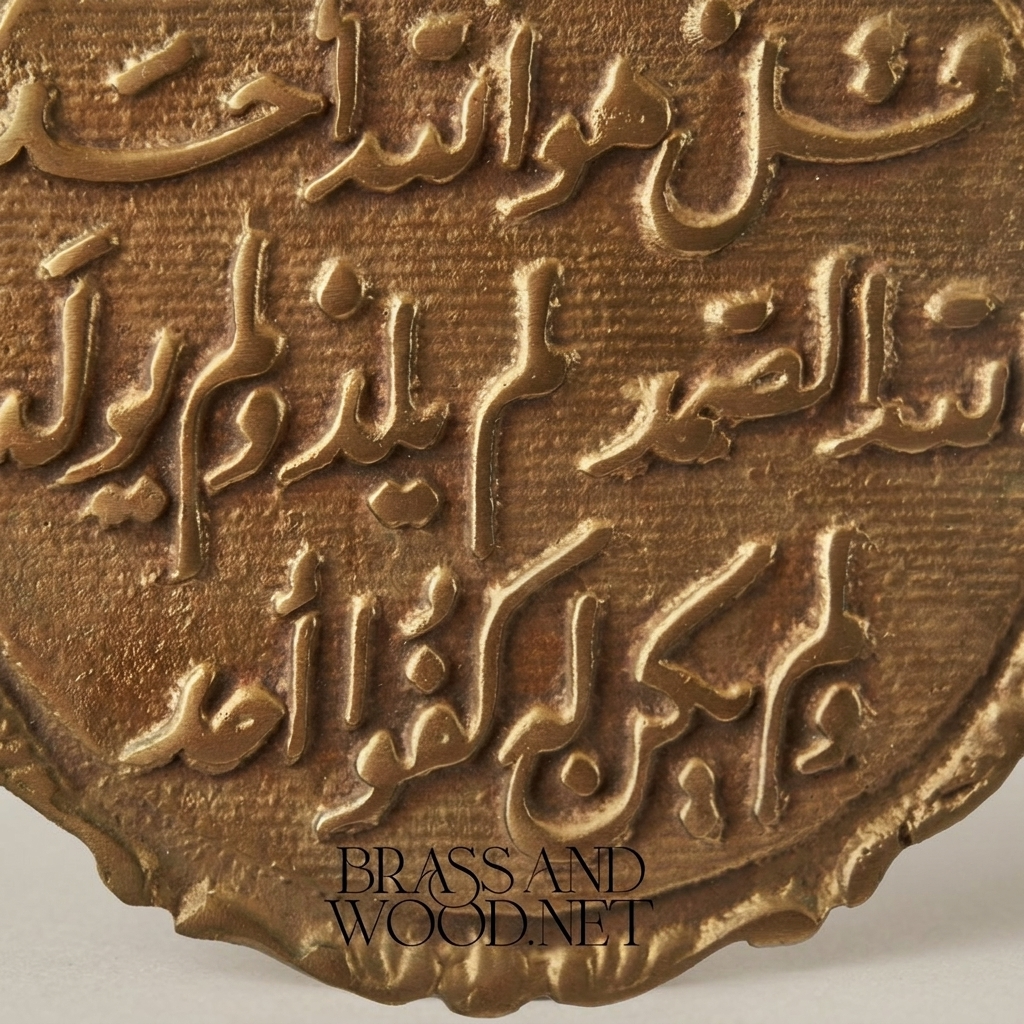 قل هو الله أحد
الله الصمد لم يلد ولم يولد
ولم يكن له كفوا أحد
BRASS AND
WOOD.NET